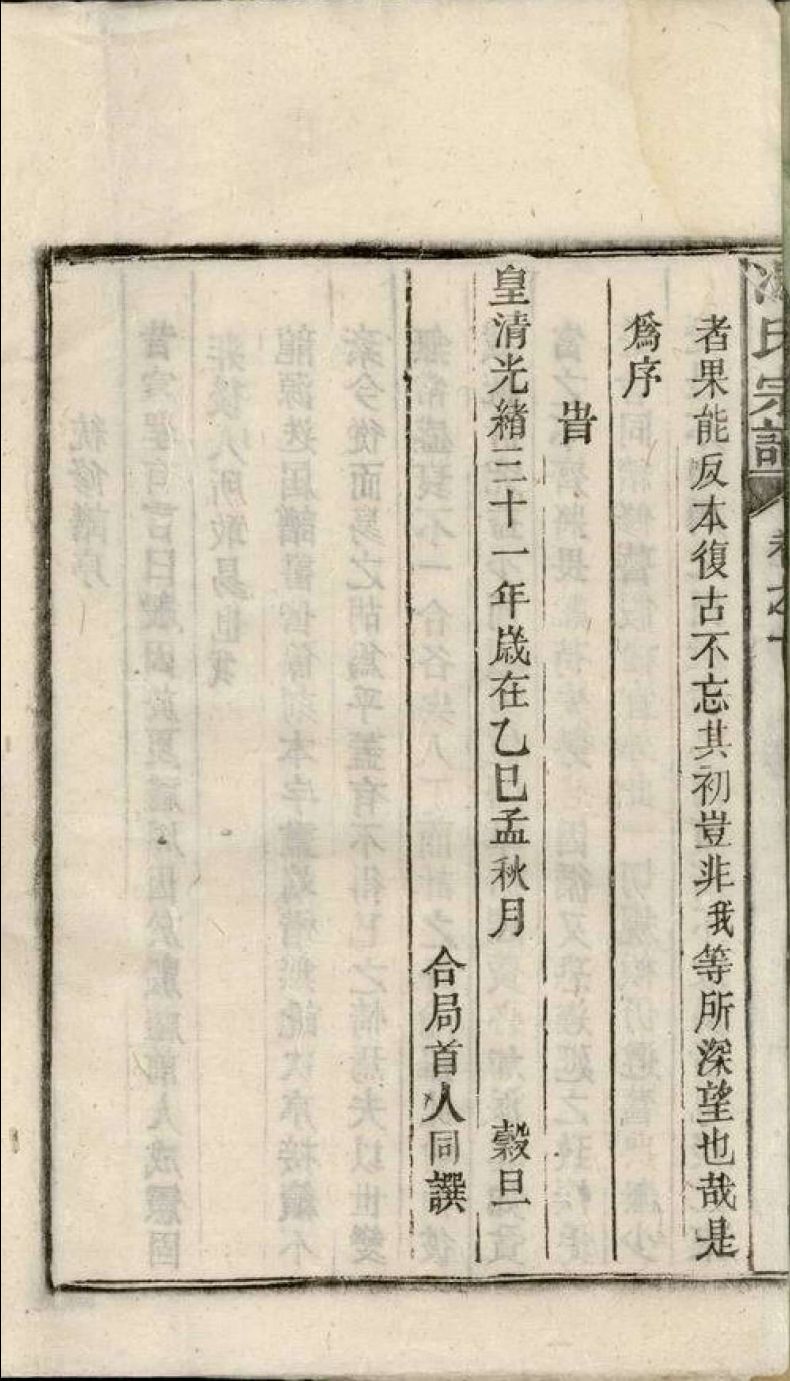 氏宗譜
者果能反本復古不忘其初豈非我等所深望也哉是
爲序
旹
皇清光緒三十一年歲在乙巳孟秋月 穀旦
合局首人同譔